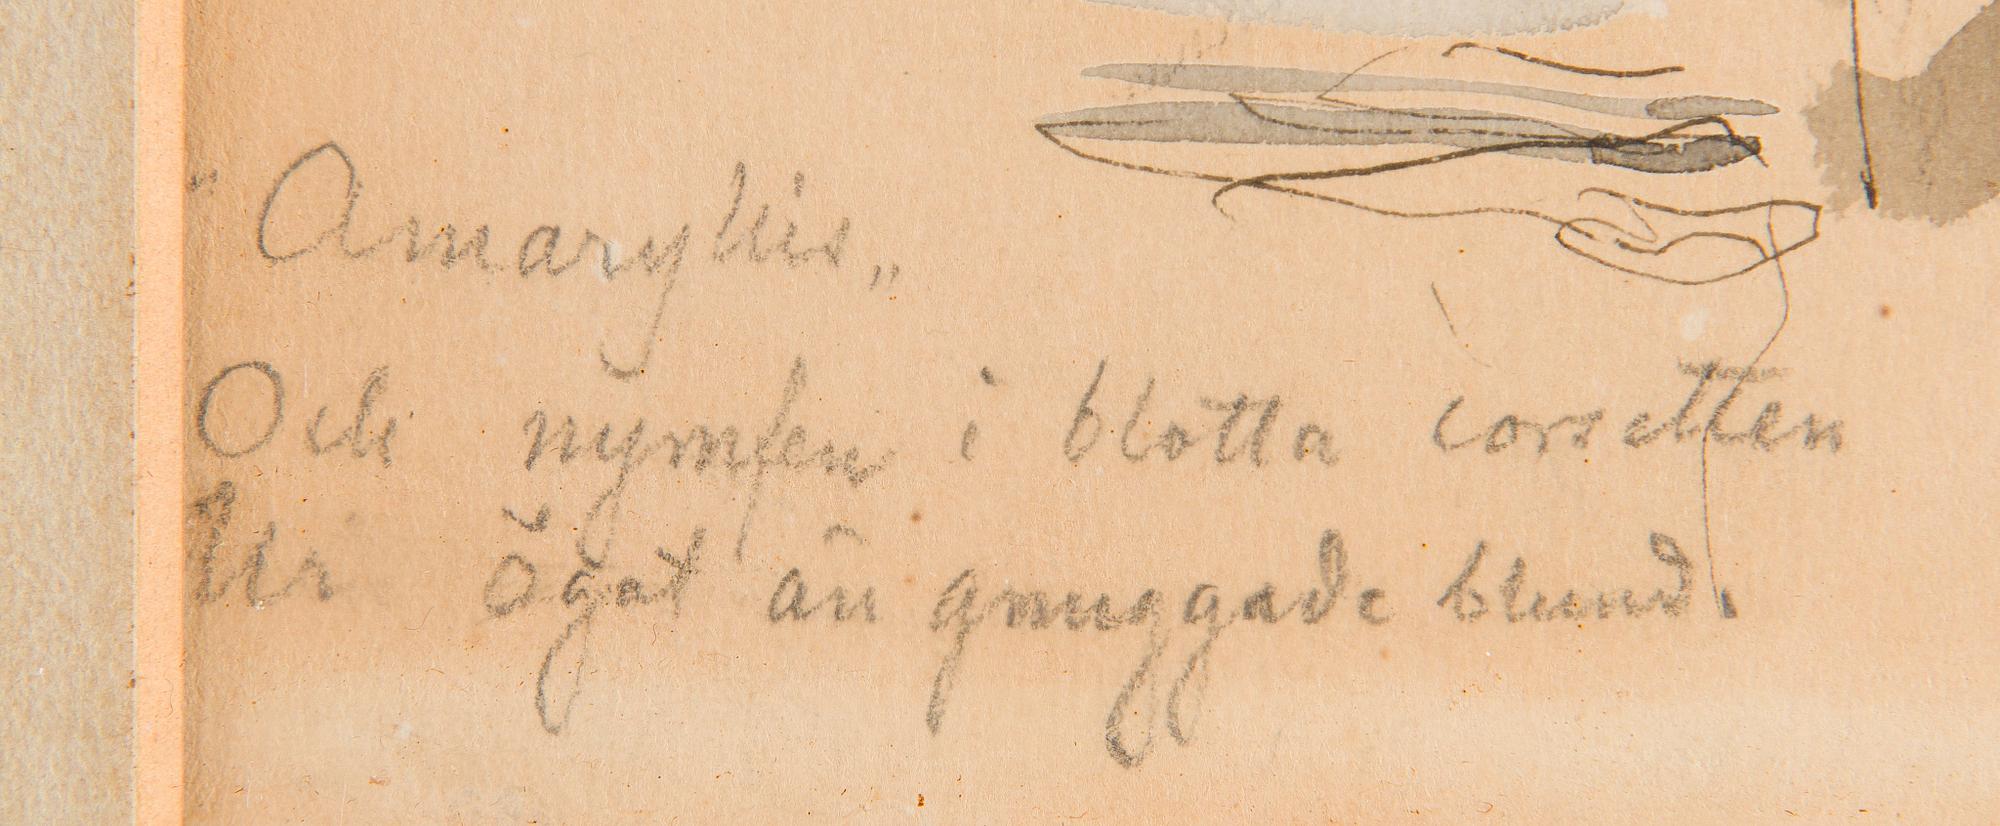 "Amaryllis„
Och nymfen i blotta corsetten
Ur ögat än gnuggade blund.